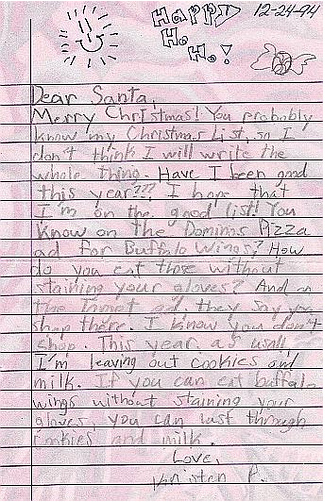 HAPPY 12-24-94
H.
H.!
Dear Santa,
Merry Christmas! You probably
know my Christmas List, so I
don't think I will write the
whole thing. Have I been good
this year??? I hope that
I'm on the good list! You
know on the Dominos Pizza
ad for Buffalo Wings? How
do you eat those without
staining your gloves? And on
the Target ad, they say you
shop there. I know you don't
shop. This year, as usual
I'm leaving out cookies and
milk. If you can eat buffalo
wings without staining your
gloves, you can last through
cookies and milk.
Love,
Kristen P.